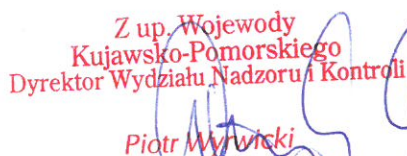 Z up. Wojewody
Kujawsko-Pomorskiego
Dyrektor Wydziału Nadzoru i Kontroli
Piotr Wyrwicki